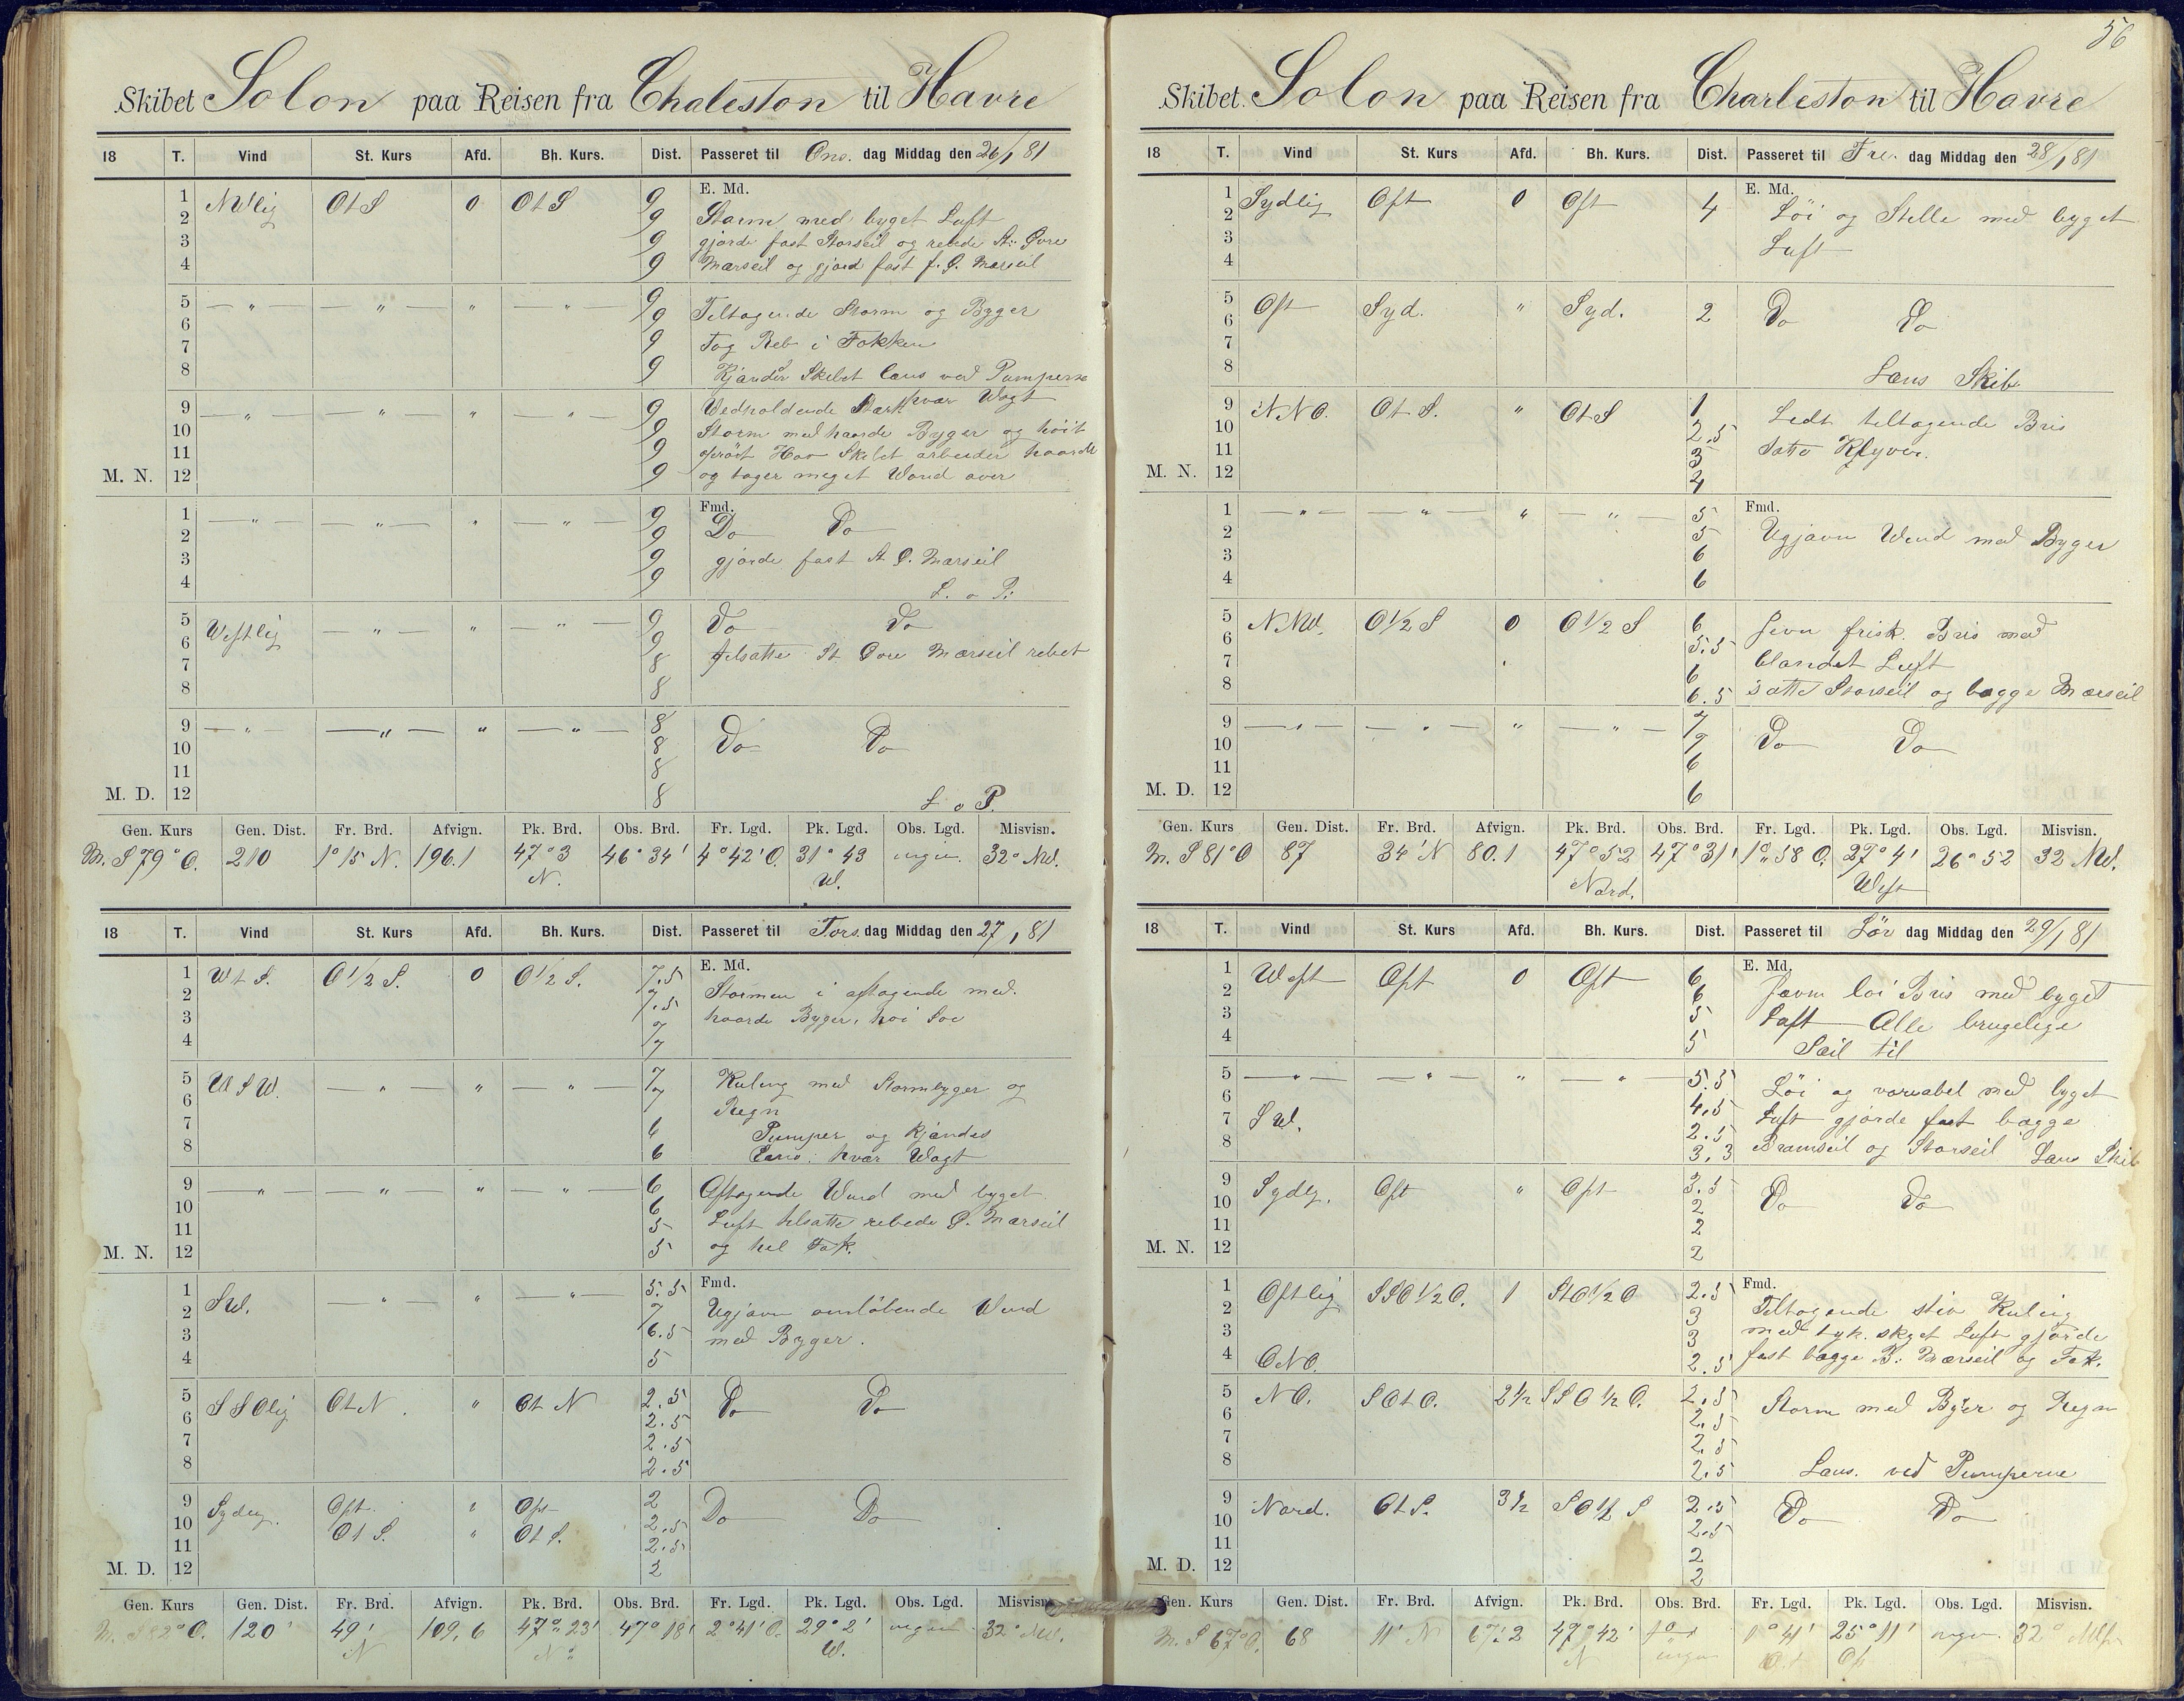 Skibet Solon paa Reisen fra Chaleston til Havre
18 T. Vind St. Kurs Afd. Bh. Kurs. Dist. Passeret til Ons. dag Middag den 26/1 81
E. Md.
1 NWlig OtS 0 OtS 9
2 9 Storm med byget Luft
3 9 gjorde fast Storseil og rebede St: Øvre
4 9 Mærseil og gjord fast f. Ø. Mærseil
5 — " — — " — " — " — 9
6 9 Tiltagende Storm og Byger
7 9 Tog Reb i Fokken
8 9 Kjænder Skibet læns ved Pumperne
hvær Wagt
9 — " — — " — " — " — 9 Vedholdende Stærk
10 9 Storm med haarde Byger og höit
11 9 oprört Hav Skibet arbeider haardt
M. N. 12 9 og tager meget Vand over
Fmd.
1 — " — — " — " — " — 9 Do Do
2 9
3 9 gjorde fast St Ø. Mærseil
4 9 L. o P:
5 Westlig — " — " — " — 9 Do Do
6 9 tilsatte St Øvre Mærseil rebet
7 8
8 8
9 — " — — " — " — " — 8
10 8 Do Do
11 8
M. D. 12 8 L o P.
Gen. Kurs Gen. Dist. Fr. Brd. Afvign. Pk. Brd. Obs. Brd. Fr. Lgd. Pk. Lgd. Obs. Lgd. Misvisn.
M. S 79° O. 210 1° 15 N. 196.1 47° 3 N. 46° 34' 4° 42' O. 31° 43 W. ingen 32° NW.
18 T. Vind St. Kurs Afd. Bh. Kurs. Dist. Passeret til Tors. dag Middag den 27/1 81
E. Md.
1 WtS. O1/2 S. 0 O1/2 S. 7.5
2 7.5 Stormen i aftagende med
3 7 haarde Byger, höi Söe
4 7
5 WSW. — " — " — " — 7 Kuling med Stormbyger og
6 7 Regn
7 6 Pumper og kjændes
8 6 Læns hvær Wagt
9 — " — — " — " — " — 6 Aftagende Wind med byget
10 6 Luft tilsatte rebede Ø. Mærseil
11 5 og hel Fok.
M. N. 12 5
Fmd.
1 SW. — " — " — " — 5.5
2 7 Ugjævn omlöbende Wind
3 6.5 med Byger.
4 5
5 SSOlig OtN. " OtN 2.5 Do Do
6 2.5
7 2.5
8 2.5
9 Sydlig. Ost. " Ost 2 Do Do
10 OtS. " OtS. 2.5
11 2.5
M. D. 12 2
Gen. Kurs Gen. Dist. Fr. Brd. Afvign. Pk. Brd. Obs. Brd. Fr. Lgd. Pk. Lgd. Obs. Lgd. Misvisn.
M. S 82° O. 120' 49' N 109,6 47° 23' N 47° 18' 2° 41' O. 29° 2' W. ingen 32° NW.
56
Skibet Solon paa Reisen fra Charleston til Havre
18 T. Vind St. Kurs Afd. Bh. Kurs. Dist. Passeret til Fre. dag Middag den 28/1 81
E. Md.
1 Sydlig Ost 0 Ost 4 Löi og Stille med byget
2 Luft
3
4
5 Ost Syd. " Syd. 2 Do Do
6
7
8 Læns Skib
9 NNO. OtS. " OtS 1 Lidt tiltagende Bris
10 2.5 Satte Klyver.
11 3
M. N. 12 4
Fmd.
1 — " — — " — " — " — 5
2 5 Ugjævn Wind med Byger
3 6
4 6
5 NNW. O1/2 S 0 O1/2 S 6 Jevn frisk Bris med
6 5.5 blandet Luft
7 6
8 6.5 satte Storseil og begge Mærseil
9 — " — — " — " — " — 7 Do Do
10 7
11 6
M. D. 12 6
Gen. Kurs Gen. Dist. Fr. Brd. Afvign. Pk. Brd. Obs. Brd. Fr. Lgd. Pk. Lgd. Obs. Lgd. Misvisn.
M. S 81° O 87 34' N 80.1 47° 52 Nord. 47° 31' 1° 58 O. 27° 4' West 26° 52 32 NW.
18 T. Vind St. Kurs Afd. Bh. Kurs. Dist. Passeret til Lör dag Middag den 29/1 81
E. Md.
1 West Ost 0 Ost 6 Jævn löi Bris med byget
2 6 Luft Alle brugelige
3 5 Seil til
4 5
5 — " — — " — " — " — 5.5 Löi og variabel med byget
6 4.5 Luft gjorde fast begge
7 SW. 2.5 Bramseil og Storseil Læns Skib
8 3.3
9 Sydlig. Ost " Ost 3.5 Do Do
10 2
11 2
M. N. 12 2
Fmd.
1 Ostlig SSO1/2O. 1 StO1/2O 2.5 Tiltagende stiv Kuling
2 3 med tyk. skyet Luft gjorde
3 3 fast begge B: Mærseil og Fok.
4 ONO. 2.5
5 NO. SOtO. 2 1/2 SSO 1/2 O. 2.5 Storm med Byer og Regn
6 2.5
7 2.5
8 2.5 Læns. ved Pumperne
9 Nord. OtS. 3 1/2 SO 1/2 S 2.5 Do Do
10 2.5
11 2
M. D. 12 2
Gen. Kurs Gen. Dist. Fr. Brd. Afvign. Pk. Brd. Obs. Brd. Fr. Lgd. Pk. Lgd. Obs. Lgd. Misvisn.
M. S 67° O. 68 11' N 67.2 47° 42' N ingen 1° 41' 25° 11' ingen 32°